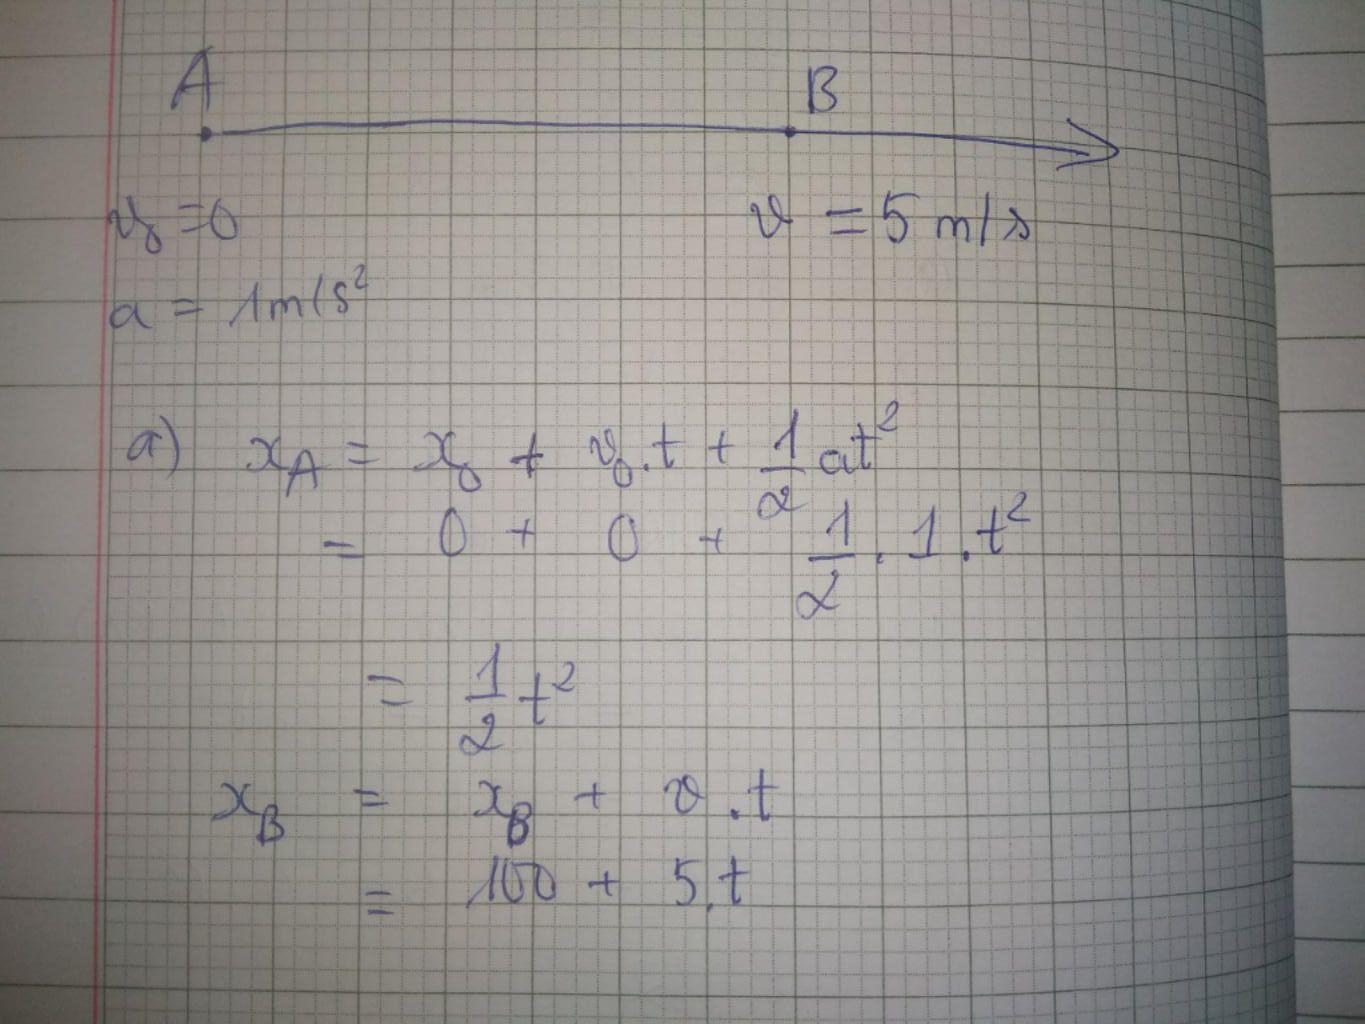 A B
v₀ = 0 v = 5 m/s
a = 1m/s²
a) x_A = x₀ + v₀.t + 1/2 at²
= 0 + 0 + 1/2 . 1 . t²
= 1/2 t²
x_B = x_B + v . t
= 100 + 5.t